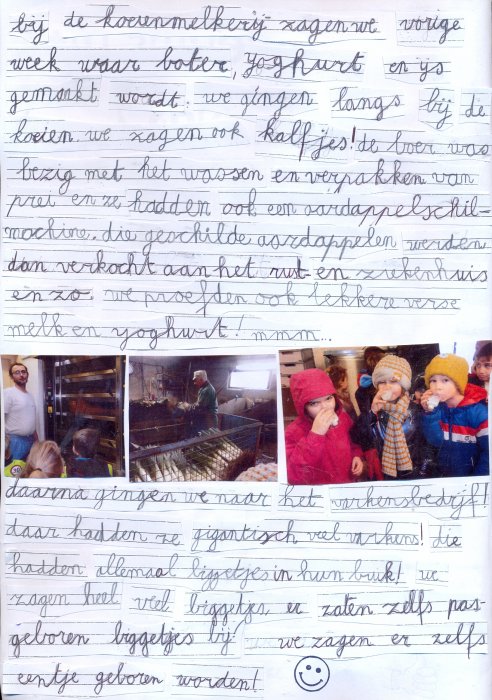 bij de koeienmelkerij zagen we vorige
week waar boter, yoghurt en ys
gemaakt wordt. we gingen langs bij de
koeien. we zagen ook kalfjes! de boer was
bezig met het wassen en verpakken van
prei en ze hadden ook een aardappelschil-
machine. die geschilde aardappelen werden
dan verkocht aan het rust en ziekenhuis
en zo. we proefden ook lekkere verse
melk en yoghurt! mmm...
daarna gingen we naar het varkensbedrijf!
daar hadden ze gigantisch veel varkens! die
hadden allemaal biggetjes in hun buik! we
zagen heel veel biggetjes er zaten zelfs pas-
geboren biggetjes bij we zagen er zelfs
eentje geboren worden!